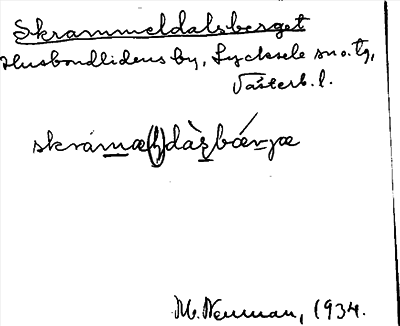 Skrammeldalsberget
Husbondlidens by, Lycksele sn o. tg,
Västerb. l.
skráma(l)dàsbœ́rjœ
M. Neuman, 1934.